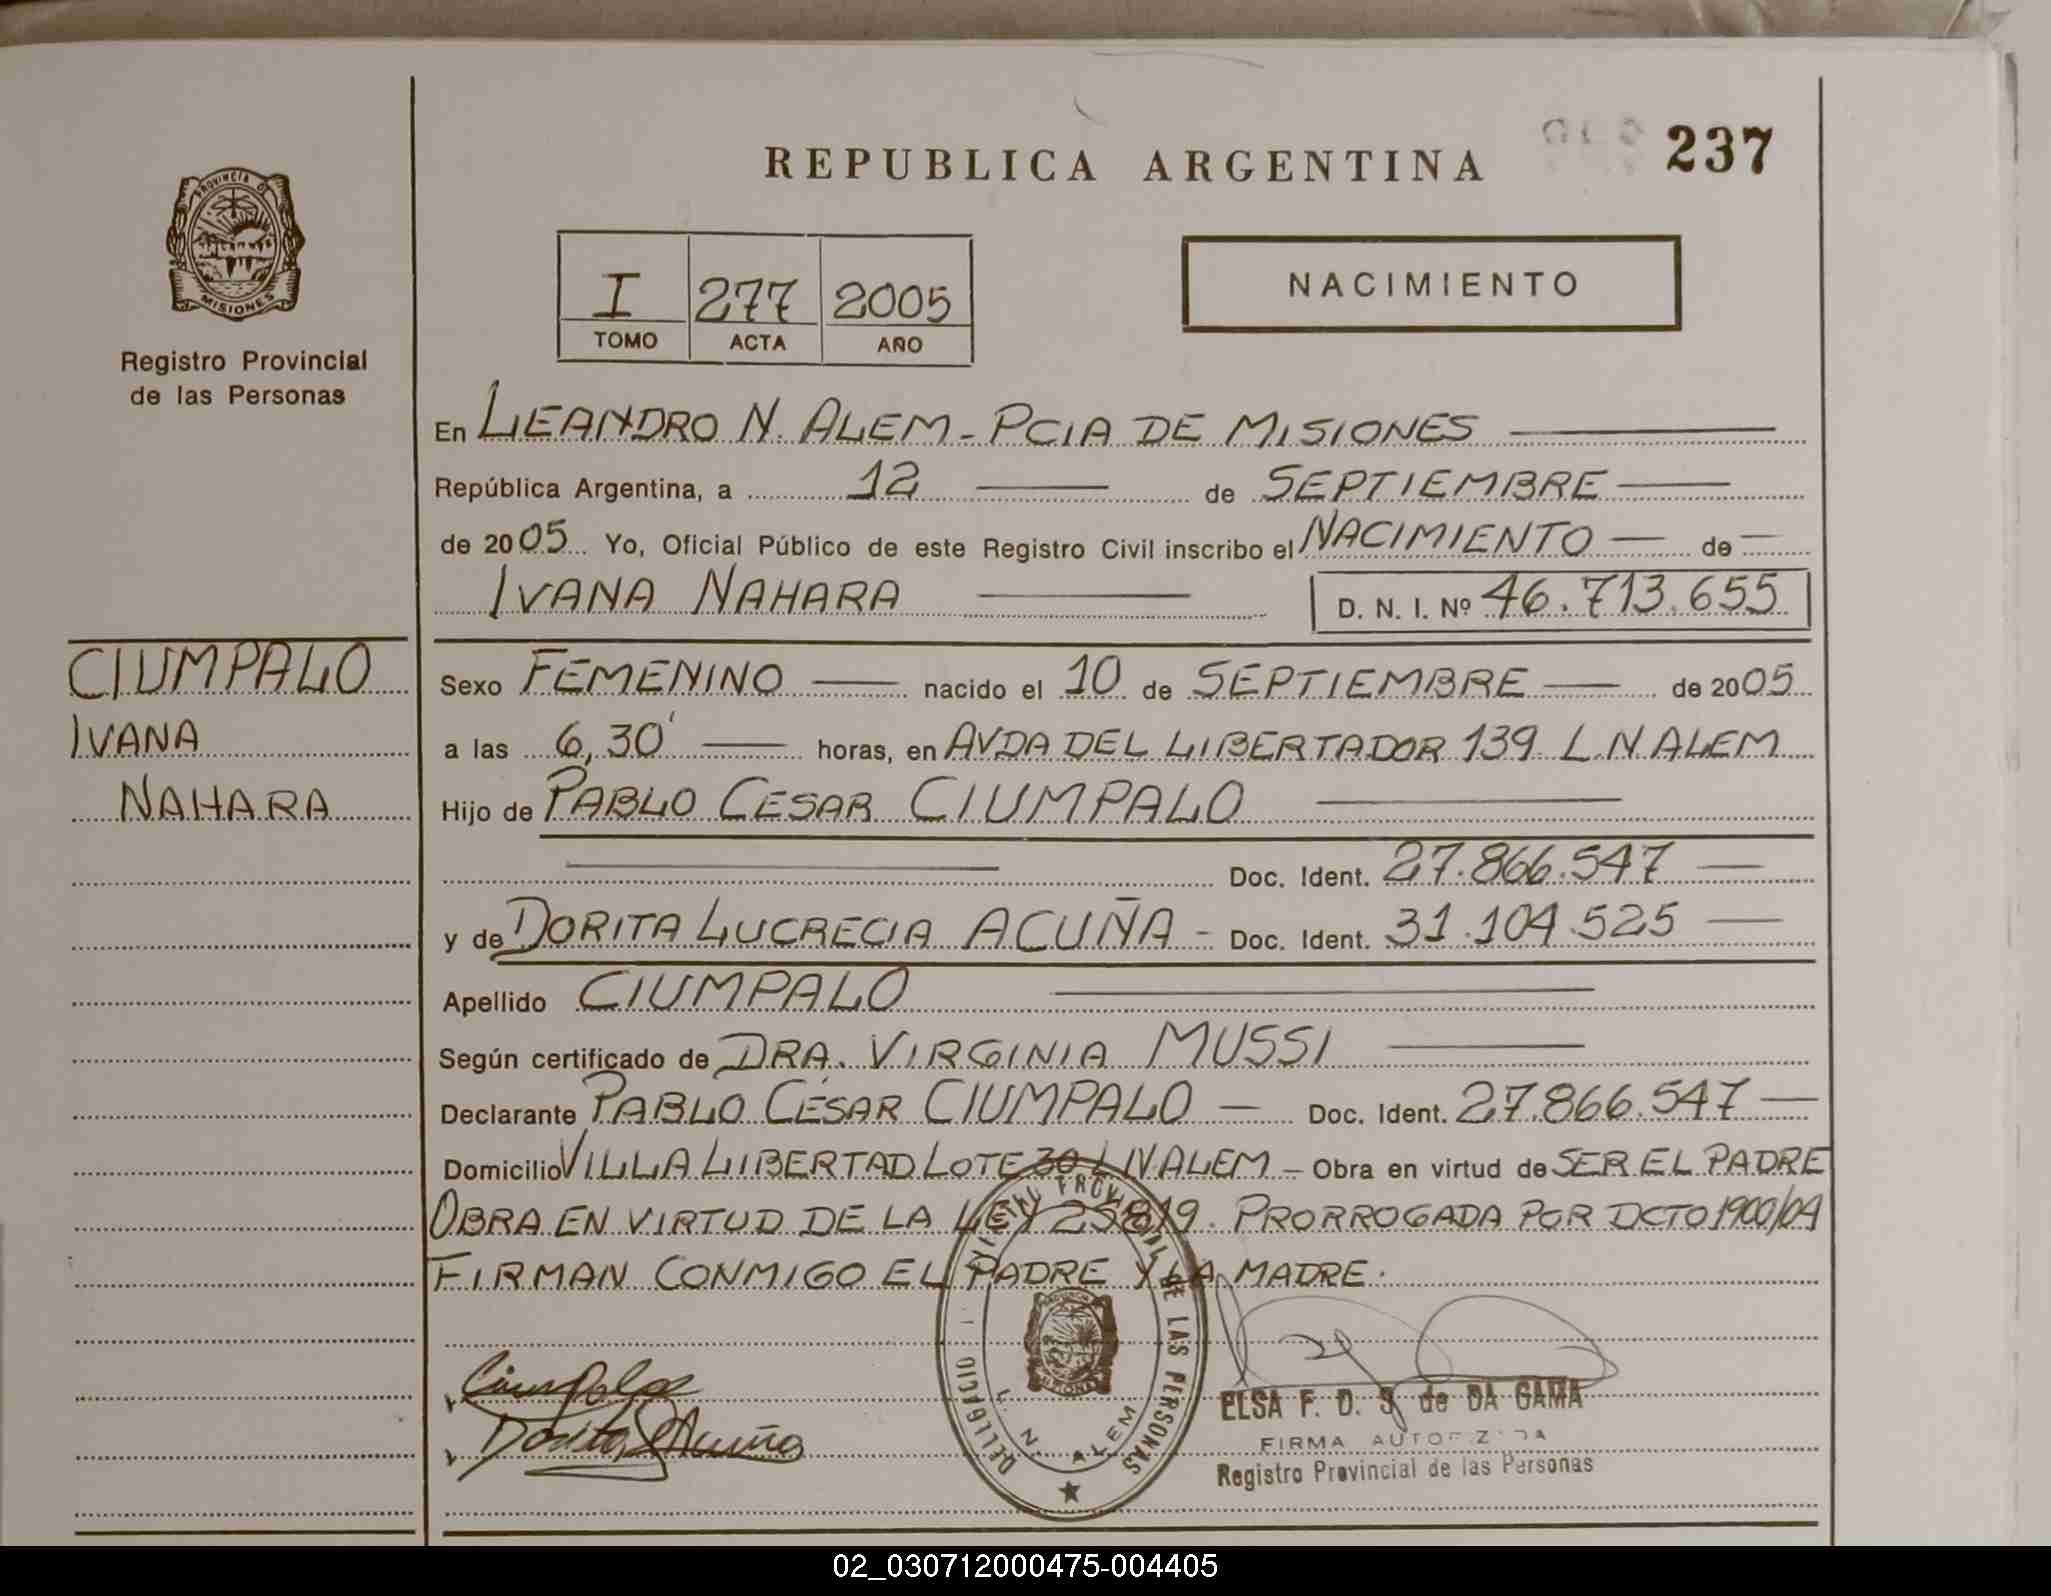 REPUBLICA ARGENTINA
237
PROVINCIA DE
MISIONES
Registro Provincial
de las Personas
I 277 2005
TOMO ACTA AÑO
NACIMIENTO
En LEANDRO N. ALEM - PCIA DE MISIONES
República Argentina, a 12 de SEPTIEMBRE
de 2005 Yo, Oficial Público de este Registro Civil inscribo el NACIMIENTO de
IVANA NAHARA D. N. I. Nº 46.713.655
CIUMPALO
IVANA
NAHARA
Sexo FEMENINO nacido el 10 de SEPTIEMBRE de 2005
a las 6,30' horas, en AVDA DEL LIBERTADOR 139 L.N. ALEM
Hijo de PABLO CESAR CIUMPALO
Doc. Ident. 27.866.547
y de DORITA LUCRECIA ACUÑA - Doc. Ident. 31.104.525
Apellido CIUMPALO
Según certificado de DRA. VIRGINIA MUSSI
Declarante PABLO CÉSAR CIUMPALO Doc. Ident. 27.866.547
Domicilio VILLA LIBERTAD LOTE 30 L N. ALEM - Obra en virtud de SER EL PADRE
OBRA EN VIRTUD DE LA LEY 25819. PRORROGADA POR DCTO 1900/04
FIRMAN CONMIGO EL PADRE Y LA MADRE.
PROVINCIAL DE LAS PERSONAS
L. N. ALEM
Ciumpalo
Dorita L Acuña
ELSA F. D. S de DA GAMA
FIRMA AUTORIZADA
Registro Provincial de las Personas
02_030712000475-004405